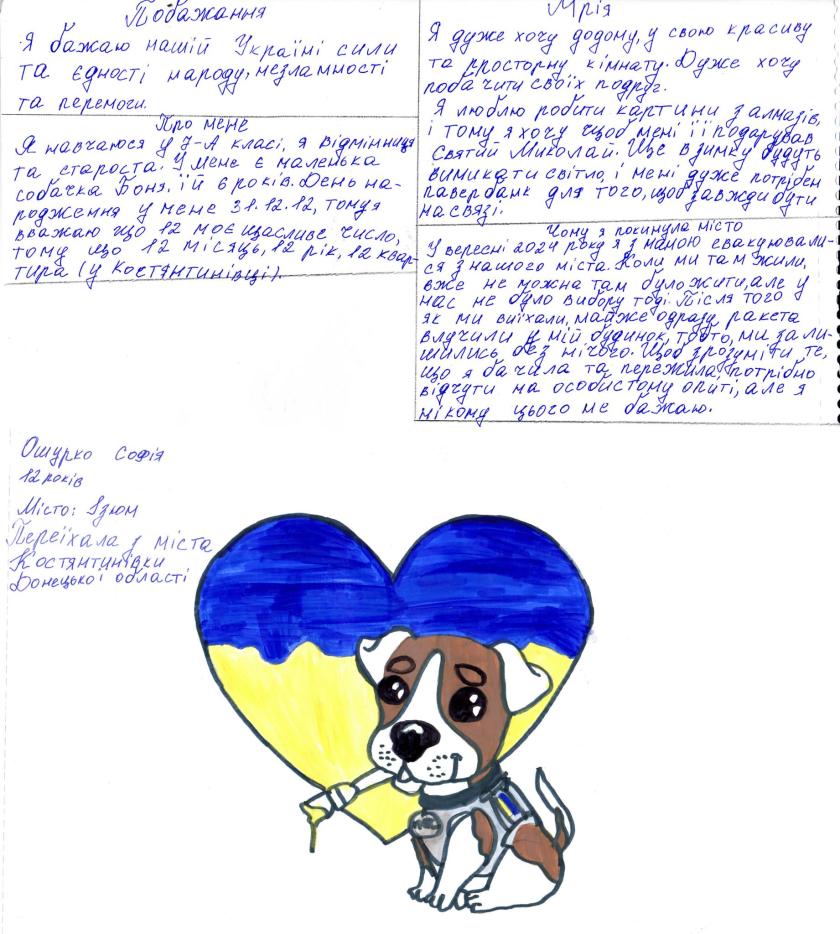 Побажання
Я бажаю нашій Україні сили
та єдності народу, незламності
та перемоги.
Про мене
Я навчаюся у 7-А класі, я відмінниця
та староста. У мене є маленька
собачка Боня, їй 6 років. День на-
родження у мене 31.12.12, тому я
вважаю що 12 моє щасливе число,
тому що 12 місяць, 12 рік, 12 квар-
тира (у Костянтинівці).
Мрія
Я дуже хочу додому, у свою красиву
та просторну кімнату. Дуже хочу
побачити своїх подруг.
Я люблю робити картини з алмазів,
і тому я хочу щоб мені її подарував
Святий Миколай. Ще взимку будуть
вимикати світло, і мені дуже потрібен
павербанк для того, щоб завжди бути
на связі.
Чому я покинула місто
У вересні 2024 року я з мамою евакуювали-
ся з нашого міста. Коли ми там жили,
вже не можна там було жити, але у
нас не було вибору тоді. Після того
як ми виїхали, майже одразу ракета
влучили у мій будинок, тобто, ми зали-
шились без нічого. Щоб зрозуміти те,
що я бачила та пережила, потрібно
відчути на особистому опиті, але я
нікому цього не бажаю.
Ошурко Софія
12 років
Місто: Ізюм
Переїхала з міста
Костянтинівки
Донецької області